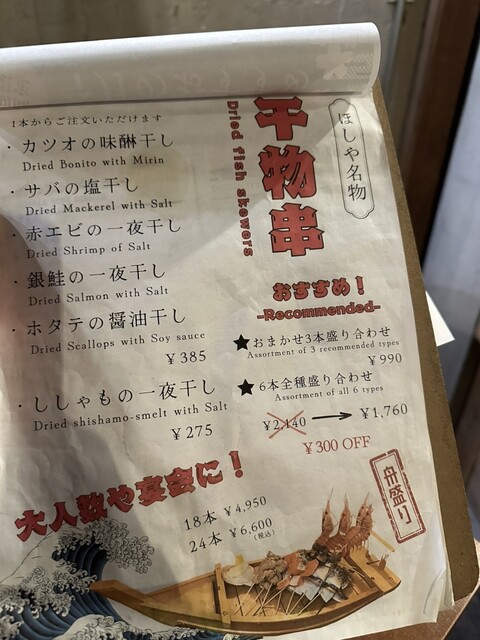 ほしや名物
干物串
Dried fish skewers
1本からご注文いただけます
・カツオの味醂干し
Dried Bonito with Mirin
・サバの塩干し
Dried Mackerel with Salt
・赤エビの一夜干し
Dried Shrimp of Salt
・銀鮭の一夜干し
Dried Salmon with Salt
・ホタテの醤油干し
Dried Scallops with Soy sauce
¥385
・ししゃもの一夜干し
Dried shishamo-smelt with Salt
¥275
おすすめ!
-Recommended-
★おまかせ3本盛り合わせ
Assortment of 3 recommended types
¥990
★6本全種盛り合わせ
Assortment of all 6 types
¥2,140 → ¥1,760
¥300 OFF
大人数や宴会に!
18本 ¥4,950
24本 ¥6,600
(税込)
舟盛り